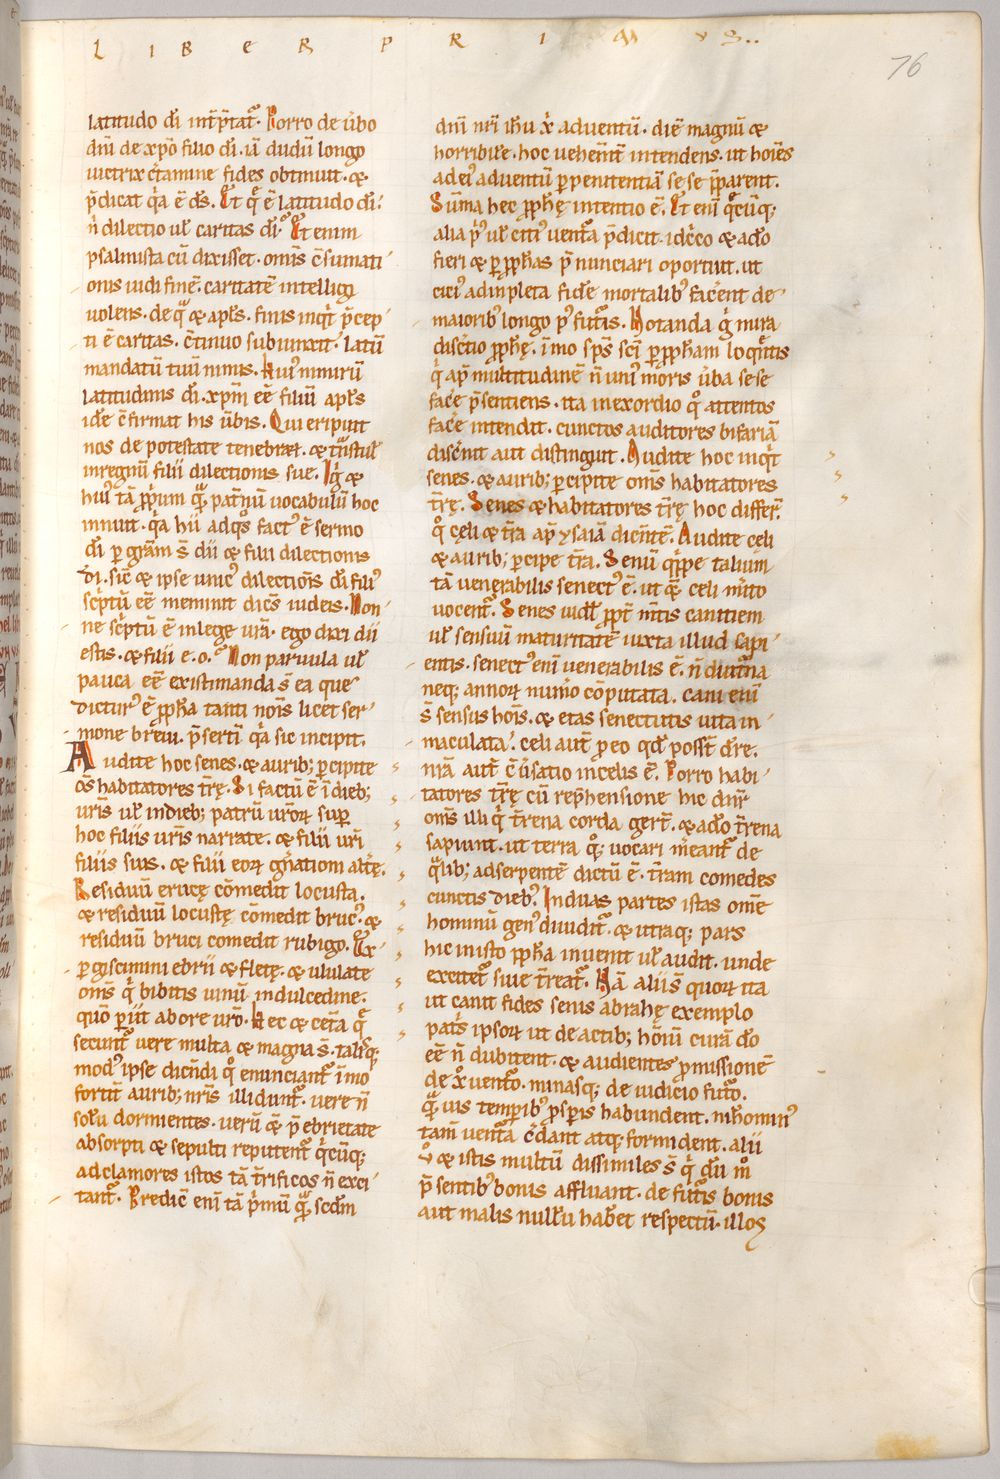 LIBER PRIMVS..
76
latitudo dī int̄p̄tat᷑. Porro de u̇bo
dn̄i de xp̄o filio dī. iā dudū longo
uictrix c̄tamine fides obtinuit. ⁊
p̄dicat q̇a ē dc̄s. Et q̄ ē latitudo dī.
n̄ dilectio uł caritas dī. Et enim
psalmista cū dixisset. omīs c̄sumati
onis uidi finē. caritatē intelligi
uolens. de q̄ ⁊ apłs. finis inq̇t p̄cep
ti ē caritas. c̄tinuo subiunxit. latū
mandatū tuū nimis. Huiꝰ nimirū
latitudinis dī. xp̄m eē filiū apłs
idē c̄firmat his u̇bis. Qui eripuit
nos de potestate tenebraꝝ. ⁊ t̄nstuł
in regnū filii dilectionis sue. Iġ ⁊
huiꝰ tā pp̄rium q̄ pat̄nū uocabulū hoc
innuit. q̇a hii adq̊s factꝰ ē sermo
dī p grām s̄ dii ⁊ filii dilectionis
dī. sic̄ ⁊ ipse unicꝰ dilectiōis dī filiꝰ
sc̄ptū eē meminit dicēs iudeis. Non
ne sc̄ptū ē in lege ur̄a. ego dixi dii
estis. ⁊ filii e. o. Non paruula uł
pauca eē existimanda s̄ ea que
dicturꝰ ē pp̄ha tanti noīs licet ser
mone breui. p̄sertī q̇a sic incipit.
Audite hoc senes. ⁊ aurib; percipite
oīs habitatores t̄rę. Si factū ē ī dieb;
ur̄is uł in dieb; patrū ur̄oꝝ sup
hoc filiis ur̄is narrate. ⁊ filii ur̄i
filiis suis. ⁊ filii eoꝝ gn̄ationi alt̄ę.
Residuū erucę cōmedit locusta.
⁊ residuū locustę cōmedit brucꝰ. ⁊
residuū bruci comedit rubigo. Ex
pgiscimini ebrii ⁊ flete. ⁊ ululate
oms̄ q̇ bibitis uinū in dulcedine.
quō piit ab ore ur̄o. Hec ⁊ cet̄a q̄
secunt᷑ uere multa ⁊ magna s̄. talisq;
modꝰ ipse dicēdi q̊ enunciant᷑ īmo
fortit̄ aurib; nr̄is illidunt᷑. uere n̄
solū dormientes. uerū ⁊ p̄ ebrietate
absorpti ⁊ sepulti reputent᷑ q̇cūq;
ad clamores istos tā t̄rificos n̄ exci
tant᷑. Predicē enī tā ṗmū q̄ scd̄m
dn̄i nr̄i ih̄u x̄ aduentū. diē magnū ⁊
horribilē. hoc uehem̄t intendens. ut hoīes
ad eiꝰ aduentū p penitentiā sese p̄parent.
Sūma hec pp̄hę intentio ē. Et enī q̄cūq;
alia pꝰ uł citiꝰ uent̄a p̄dicit. idc̄co ⁊ adc̄o
fieri ⁊ p pp̄has p̄nunciari oportuit. ut
citiꝰ adinpleta fidē mortalibꝰ facēnt de
maioribꝰ longo pꝰ fut̄is. Notanda g̊ mira
disc̄tio pp̄hę. īmo sp̄s sc̄i p pp̄ham loq̄ntis
q̇ ap̄ multitudinē n̄ uniꝰ moris u̇ba sese
facē p̄sentiens. ita in exordio q̊ attentos
facē intendit. cunctos auditores bifariā
disc̄nit aut distinguit. Audite hoc inq̇t
senes. ⁊ aurib; percipite oms̄ habitatores
t̄rę. Senes ⁊ habitatores t̄rę hoc differt᷑.
q̊ cęli ⁊ t̄ra ap̄ ysaiā dicentē. Audite celi
⁊ aurib; percipe t̄ra. Senū q̇ppe taliū
tā uenerabilis senectꝰ ē. ut q̄ celi m̄ito
uocent᷑. Senes uidł ppt̄ m̄tis canitiem
uł sensuū maturitatē iuxta illud sapi
entis. senectꝰ enī uenerabilis ē. n̄ diut̄na
neq; annoꝝ num̄o cōputata. cani enī
s̄ sensus hoīs. ⁊ etas senectutis uita in
maculata. celi aut̄ p eo qd̄ poss̄t dr̄e.
nr̄a aut̄ c̄u̇satio in celis ē. Porro habi
tatores t̄rę cū rep̄hensione hic dn̄r
oms̄ illi q̇ t̄rena corda ger̄t. ⁊ adc̄o t̄rena
sapiunt. ut terra q̊; uocari meant᷑ de
q̊lib; ad serpentē dictū ē. t̄ram comedes
cunctis diebꝰ. In duas partes istas omē
hominū genꝰ diuidit᷑. ⁊ utraq; pars
hic in isto pp̄ha inuenit uł audit. unde
excitet᷑ siue t̄reat᷑. Nā aliis quoꝝ ita
ut canit fides senis abrahę exemplo
pat̄s ipsoꝝ ut de actib; hoīū curā dō
eē n̄ dubitent. ⁊ audientes p̄missionē
de x̊ uent̄o. minasq; de iudicio fut̄o.
q̄uis tempib̄ꝰ psperis habundent. nichominꝰ
tam̄ uent̄a c̄dant atq; formident. alii
u̇ ⁊ istis multū dissimiles s̄ q̇ dū m̊
p̄sentibꝰ bonis affluant. de fut̄is bonis
aut malis nullū habēt respectū. illoꝝ